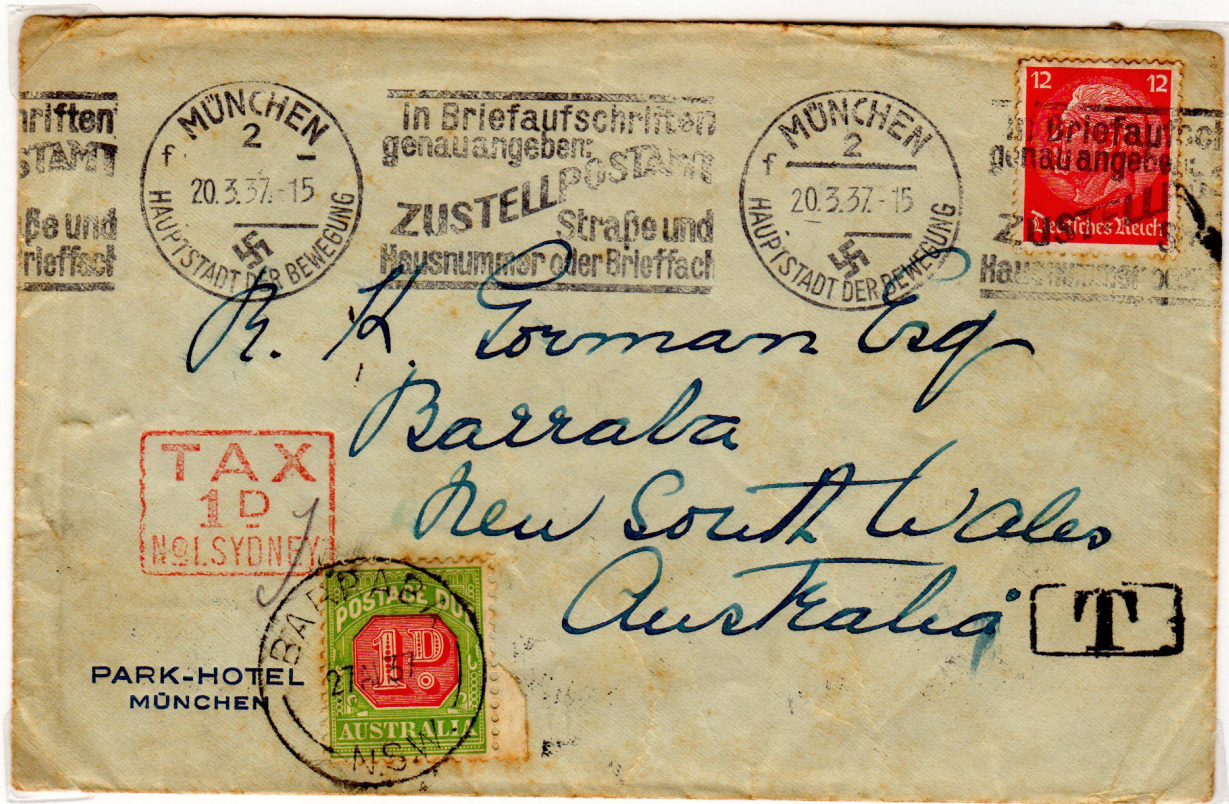 riften
STAMT
ße und
rieffach
MÜNCHEN
2
f
20.3.37.-15
HAUPTSTADT DER BEWEGUNG
In Briefaufschriften
genau angeben:
ZUSTELLPOSTAMT
Straße und
Hausnummer oder Brieffach
MÜNCHEN
2
f
20.3.37.-15
HAUPTSTADT DER BEWEGUNG
12 12
Deutsches Reich
In Briefaufsch
genau angeben:
ZUSTELL
S
Hausnummer oder
R. K. Gorman Esq
Barraba
New South Wales
Australia
TAX
1D
No1.SYDNEY
T
PARK-HOTEL
MÜNCHEN
POSTAGE DUE
1D.
AUSTRALIA
BARRABA
27 37
N.S.W.